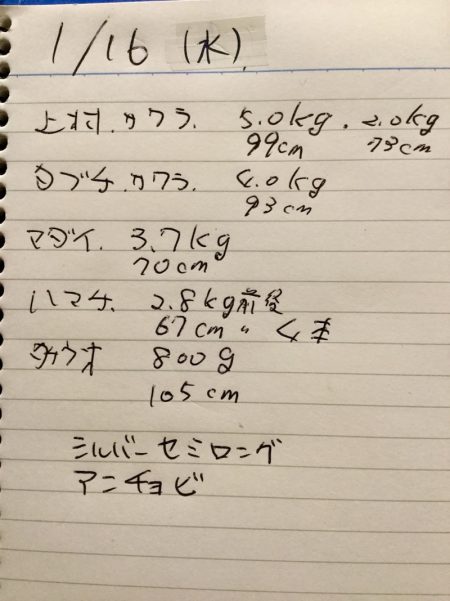 1/16 (水).
上村.サワラ. 5.0kg. 2.0kg
99cm 73cm
タブチ.サワラ. 4.0kg
93cm
マダイ. 3.7kg
70cm
ハマチ. 2.8kg前後
67cm 〃 4本
タチウオ 800g
105cm
シルバーセミロング
アンチョビ